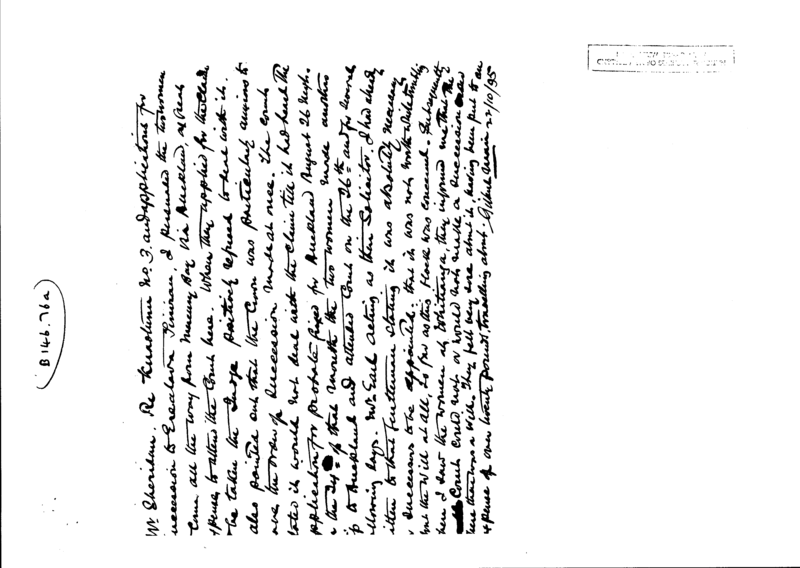 Mr Sheridan. Re Kuaotunu No. 3. and applications for
succession to Eraahora Pinirau. I persuaded the two women
come all the way from Mercury Bay via Auckland, at great
expense, to attend the Court here. When they applied for the Claim
to be taken the Judge positively refused to deal with it.
also pointed out that the Crown was particularly anxious to
have the order of succession made at once. The Court
stated it would not deal with the Claim till it had heard the
application for probate fixed for Auckland August 26 next.
On the 24th of that month the two women made another
trip to Auckland and attended Court on the 26th and for several
following days. Mr Earl acting as their Solicitor, I had already
written to that Gentleman stating it was absolutely necessary
for successors to be appointed, that it was not worth while troubling
about the Will at all, so far as this Block was concerned. Subsequently
when I saw the women at Whitianga, they informed me that the
Court could not or would not make a succession order
because there was a Will. They felt very sore about it, having been put to an
expense of over twenty pounds, travelling about. Gilbert Mair 22/10/95
(B146.76a)